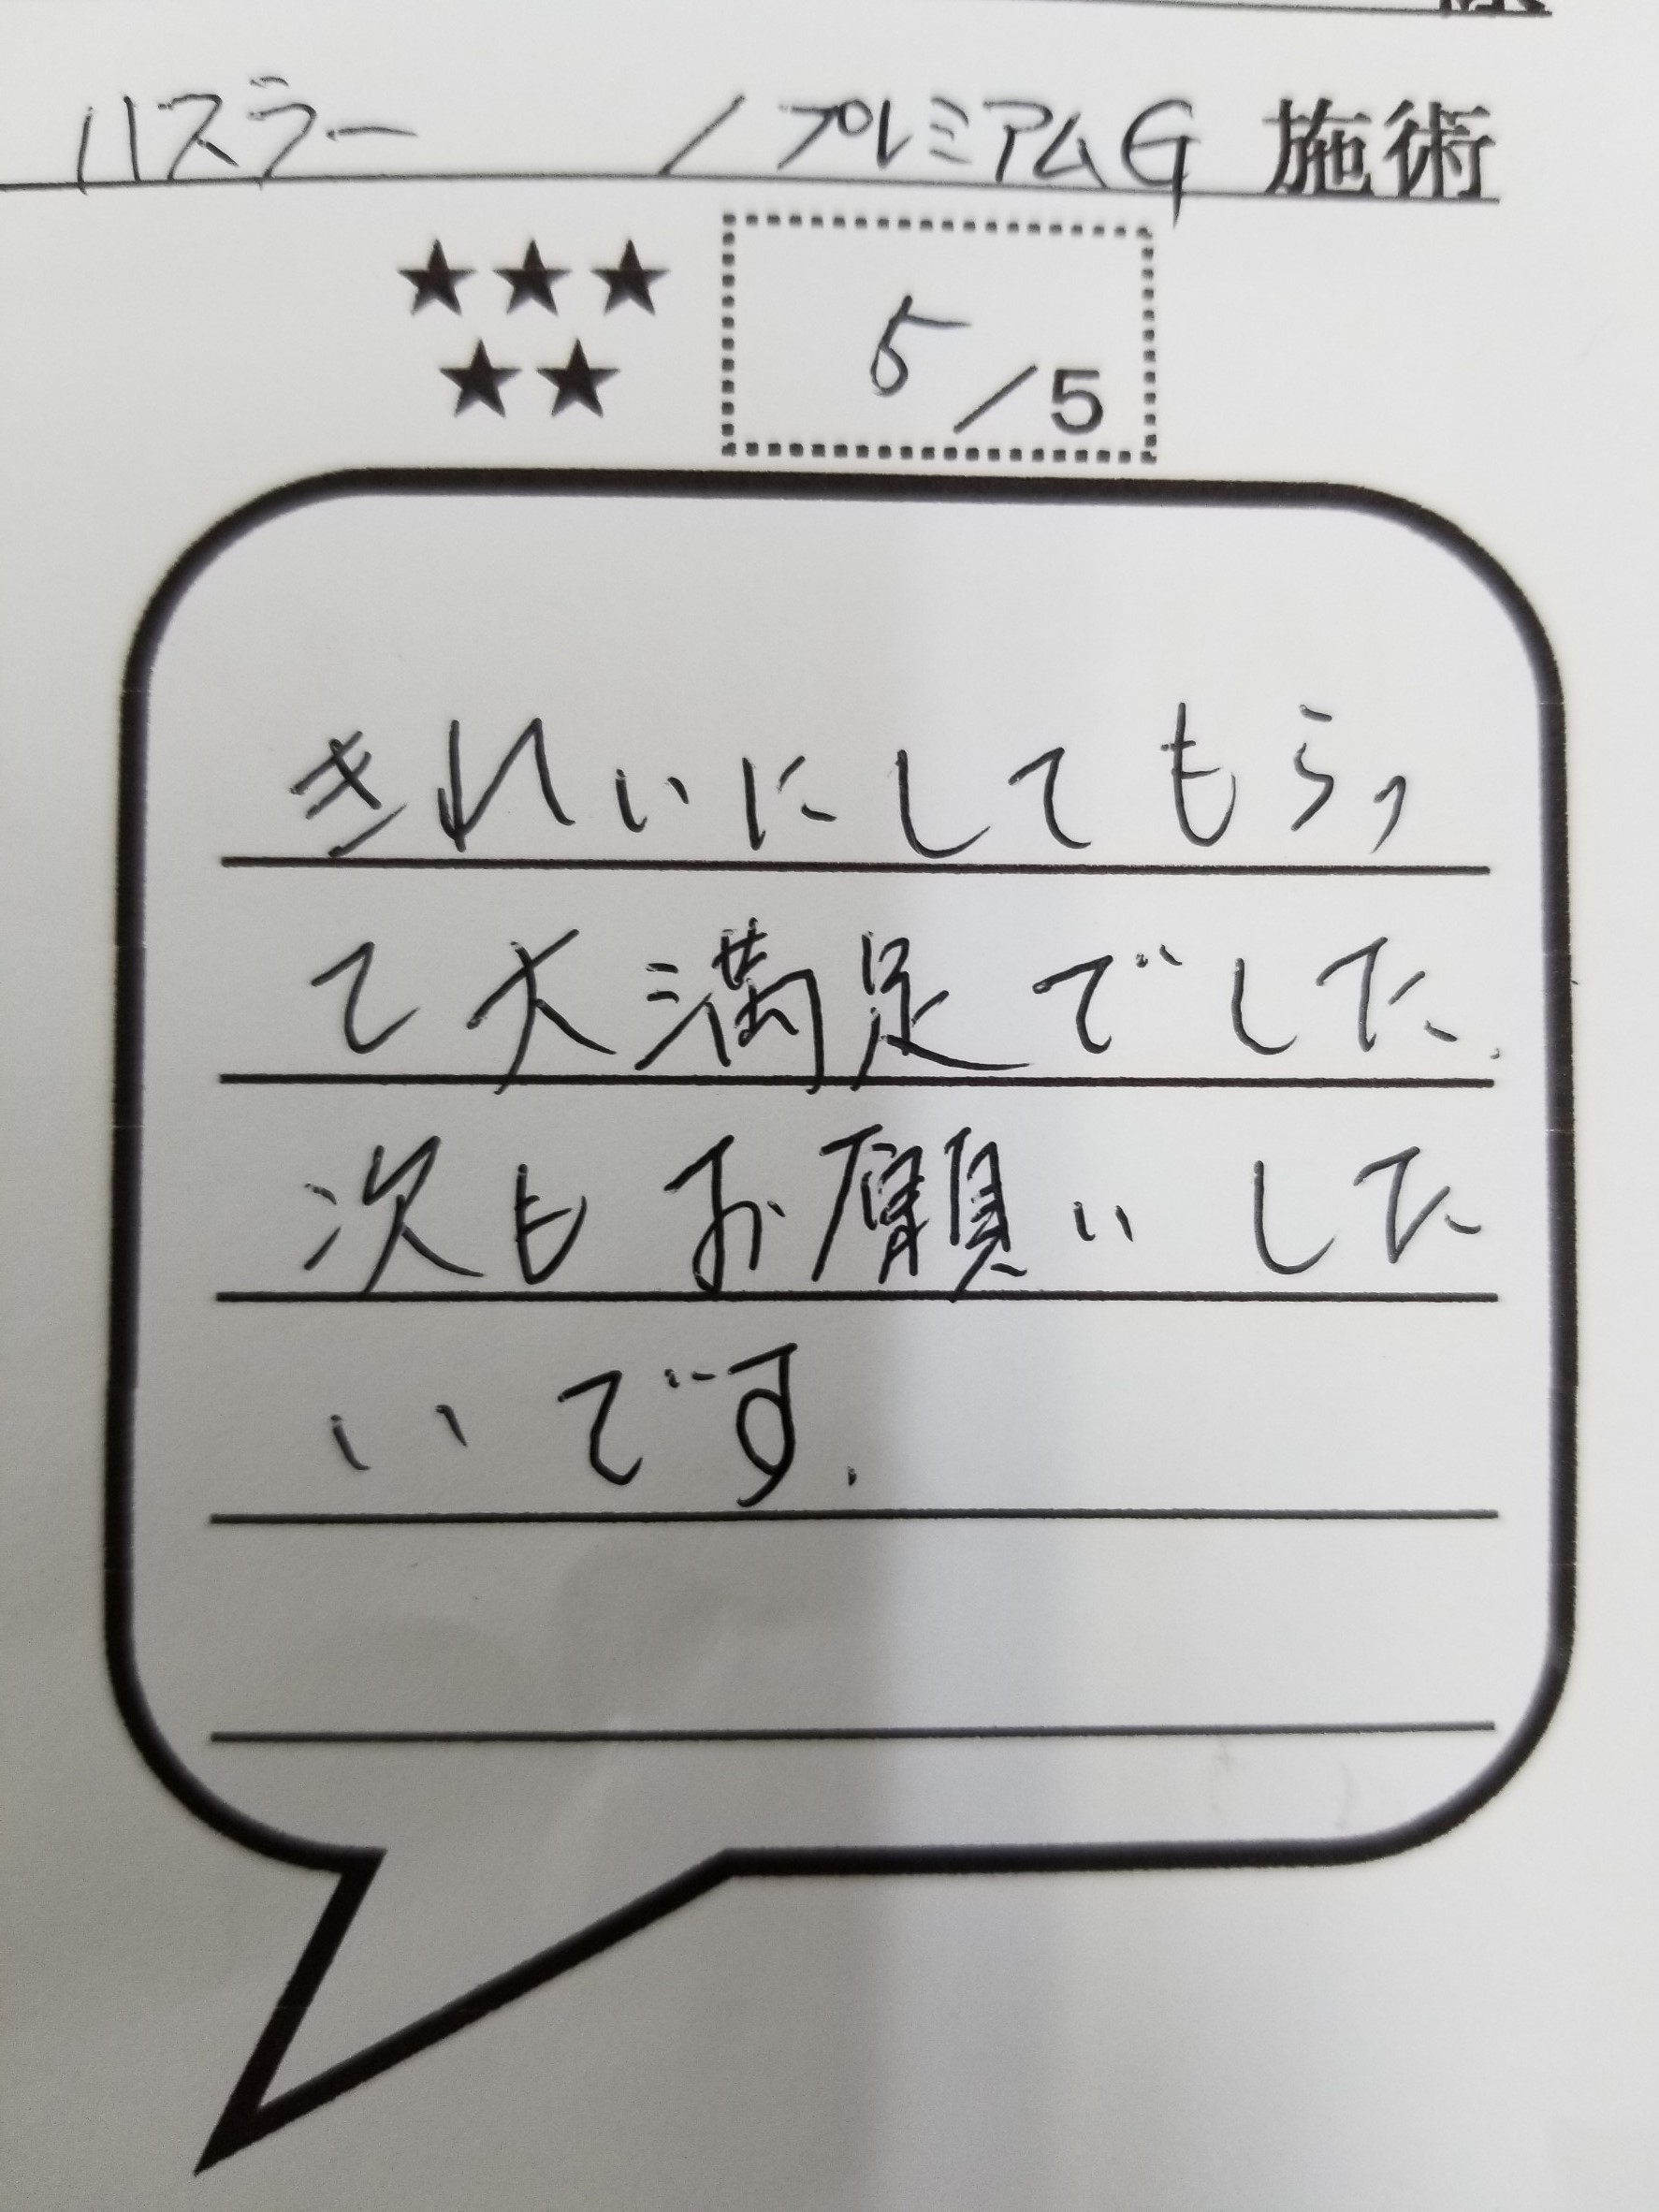 ハスラー / プレミアムG 施術
★★★
★★
5/5
きれいにしてもらっ
て大満足でした.
次もお願いした
いです.